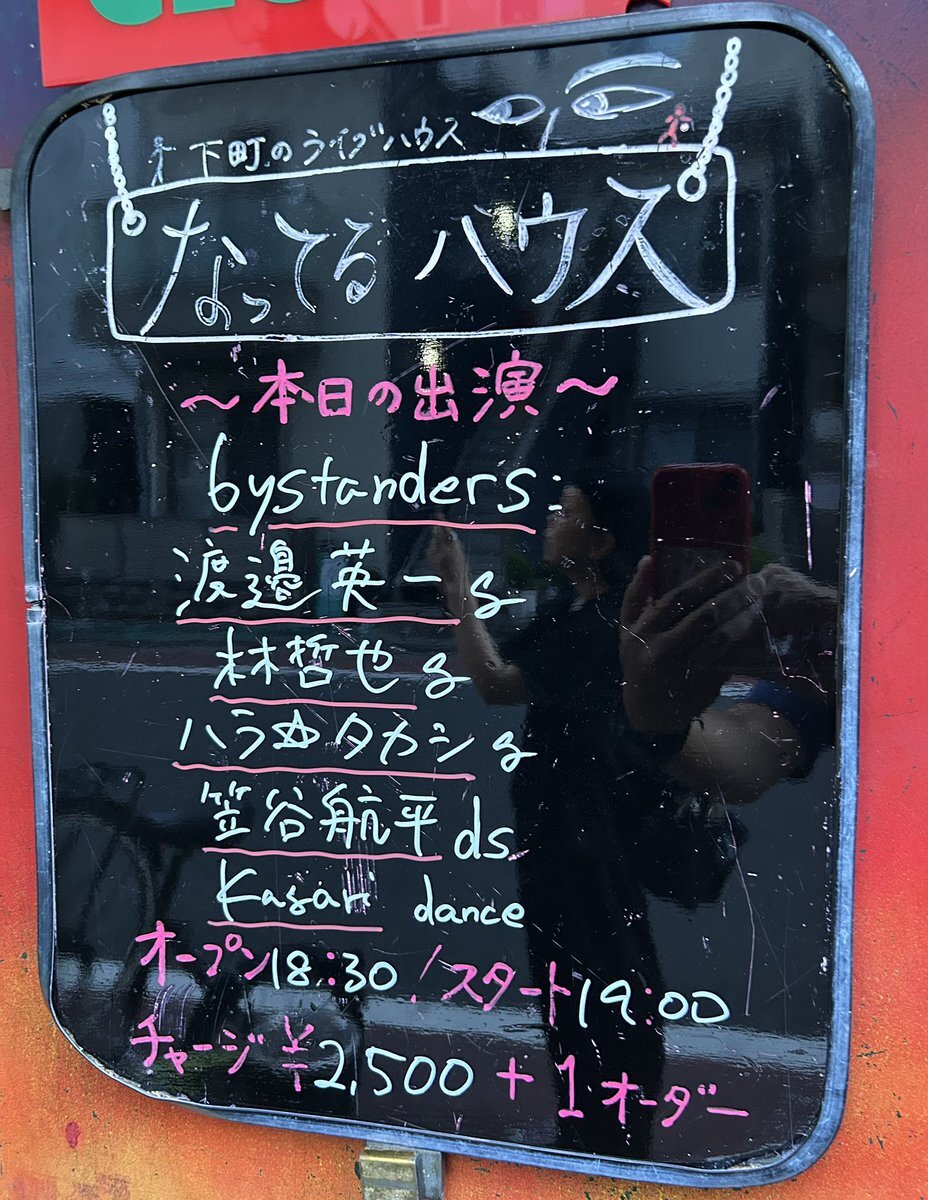 下町のライブハウス
なってるハウス
～本日の出演～
bystanders:
渡邊英一 g
林哲也 g
ハラ☆タカシ g
笠谷航平 ds
Kasari dance
オープン18:30/スタート19:00
チャージ¥2,500+1オーダー